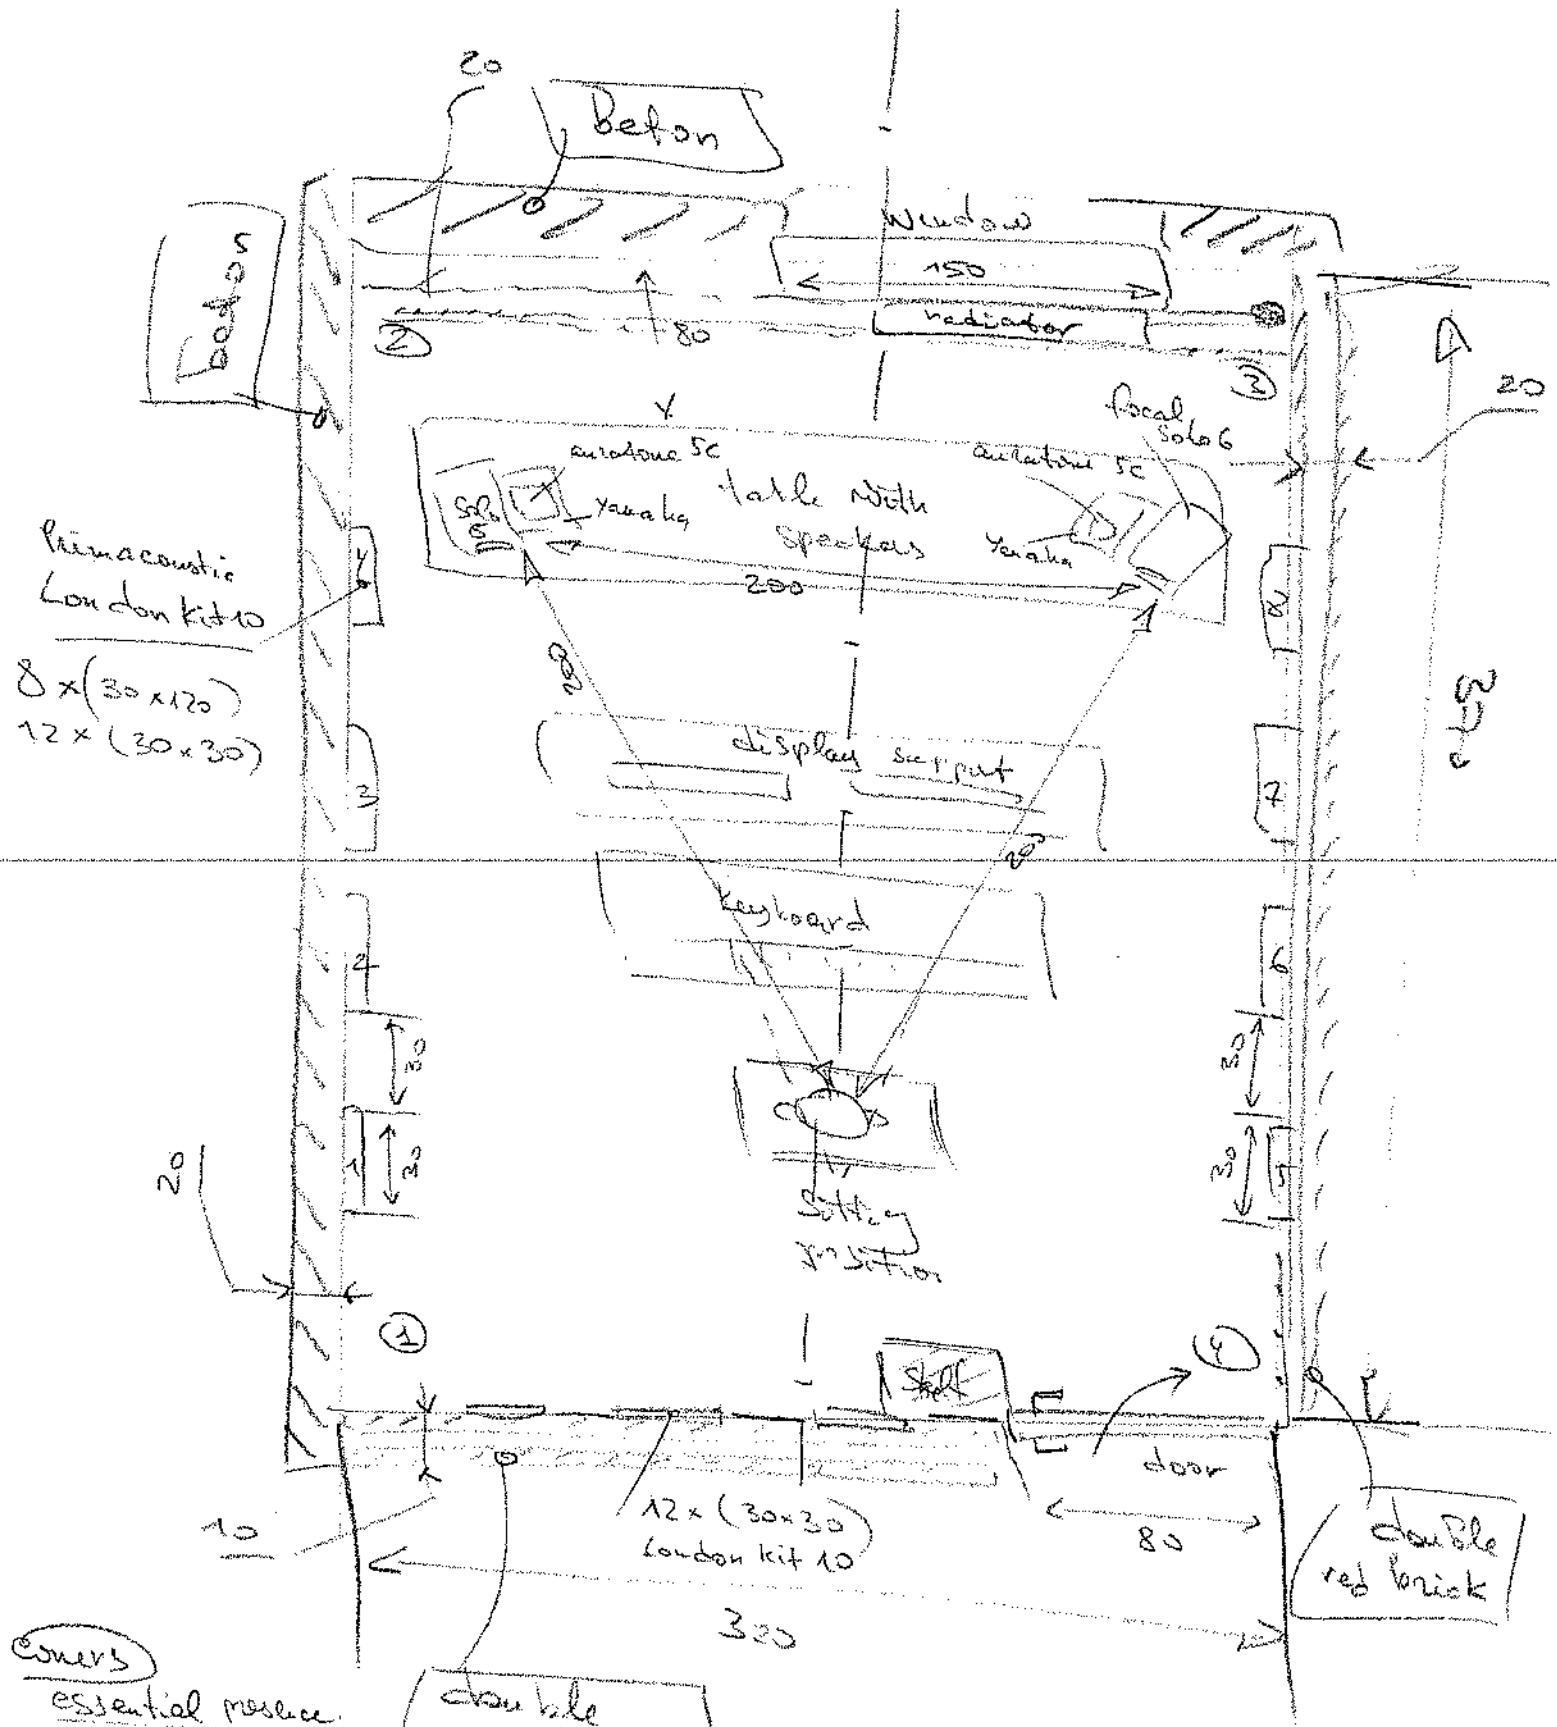 20
Beton
Window
150
radiator
80
2
3
20
focal
Solo6
auratone 5c
auratone 5c
Solo
6
Yamaha
table with
speakers
Yamaha
200
Primacoustic
London Kit 10
8 x (30 x 120)
12 x (30 x 30)
200
200
display support
keyboard
3
2
1
8
7
6
5
30
30
30
30
20
Sitting
position
1
4
Shelf
door
10
12 x (30x30)
London Kit 10
80
320
double
red brick
Corners
essential
double